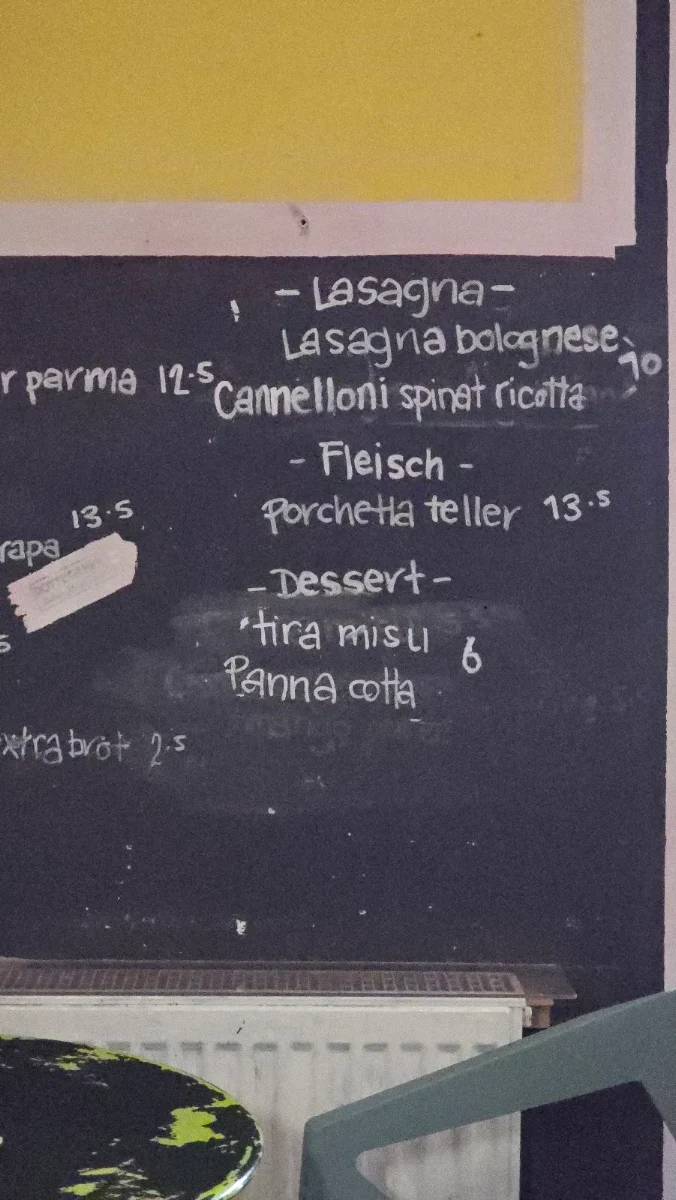 - Lasagna -
Lasagna bolognese
10
Cannelloni spinat ricotta
- Fleisch -
Porchetta teller 13.5
- Dessert -
tira misu
6
Panna cotta
r parma 12.5
13.5
rapa
5
xtra brot 2.5